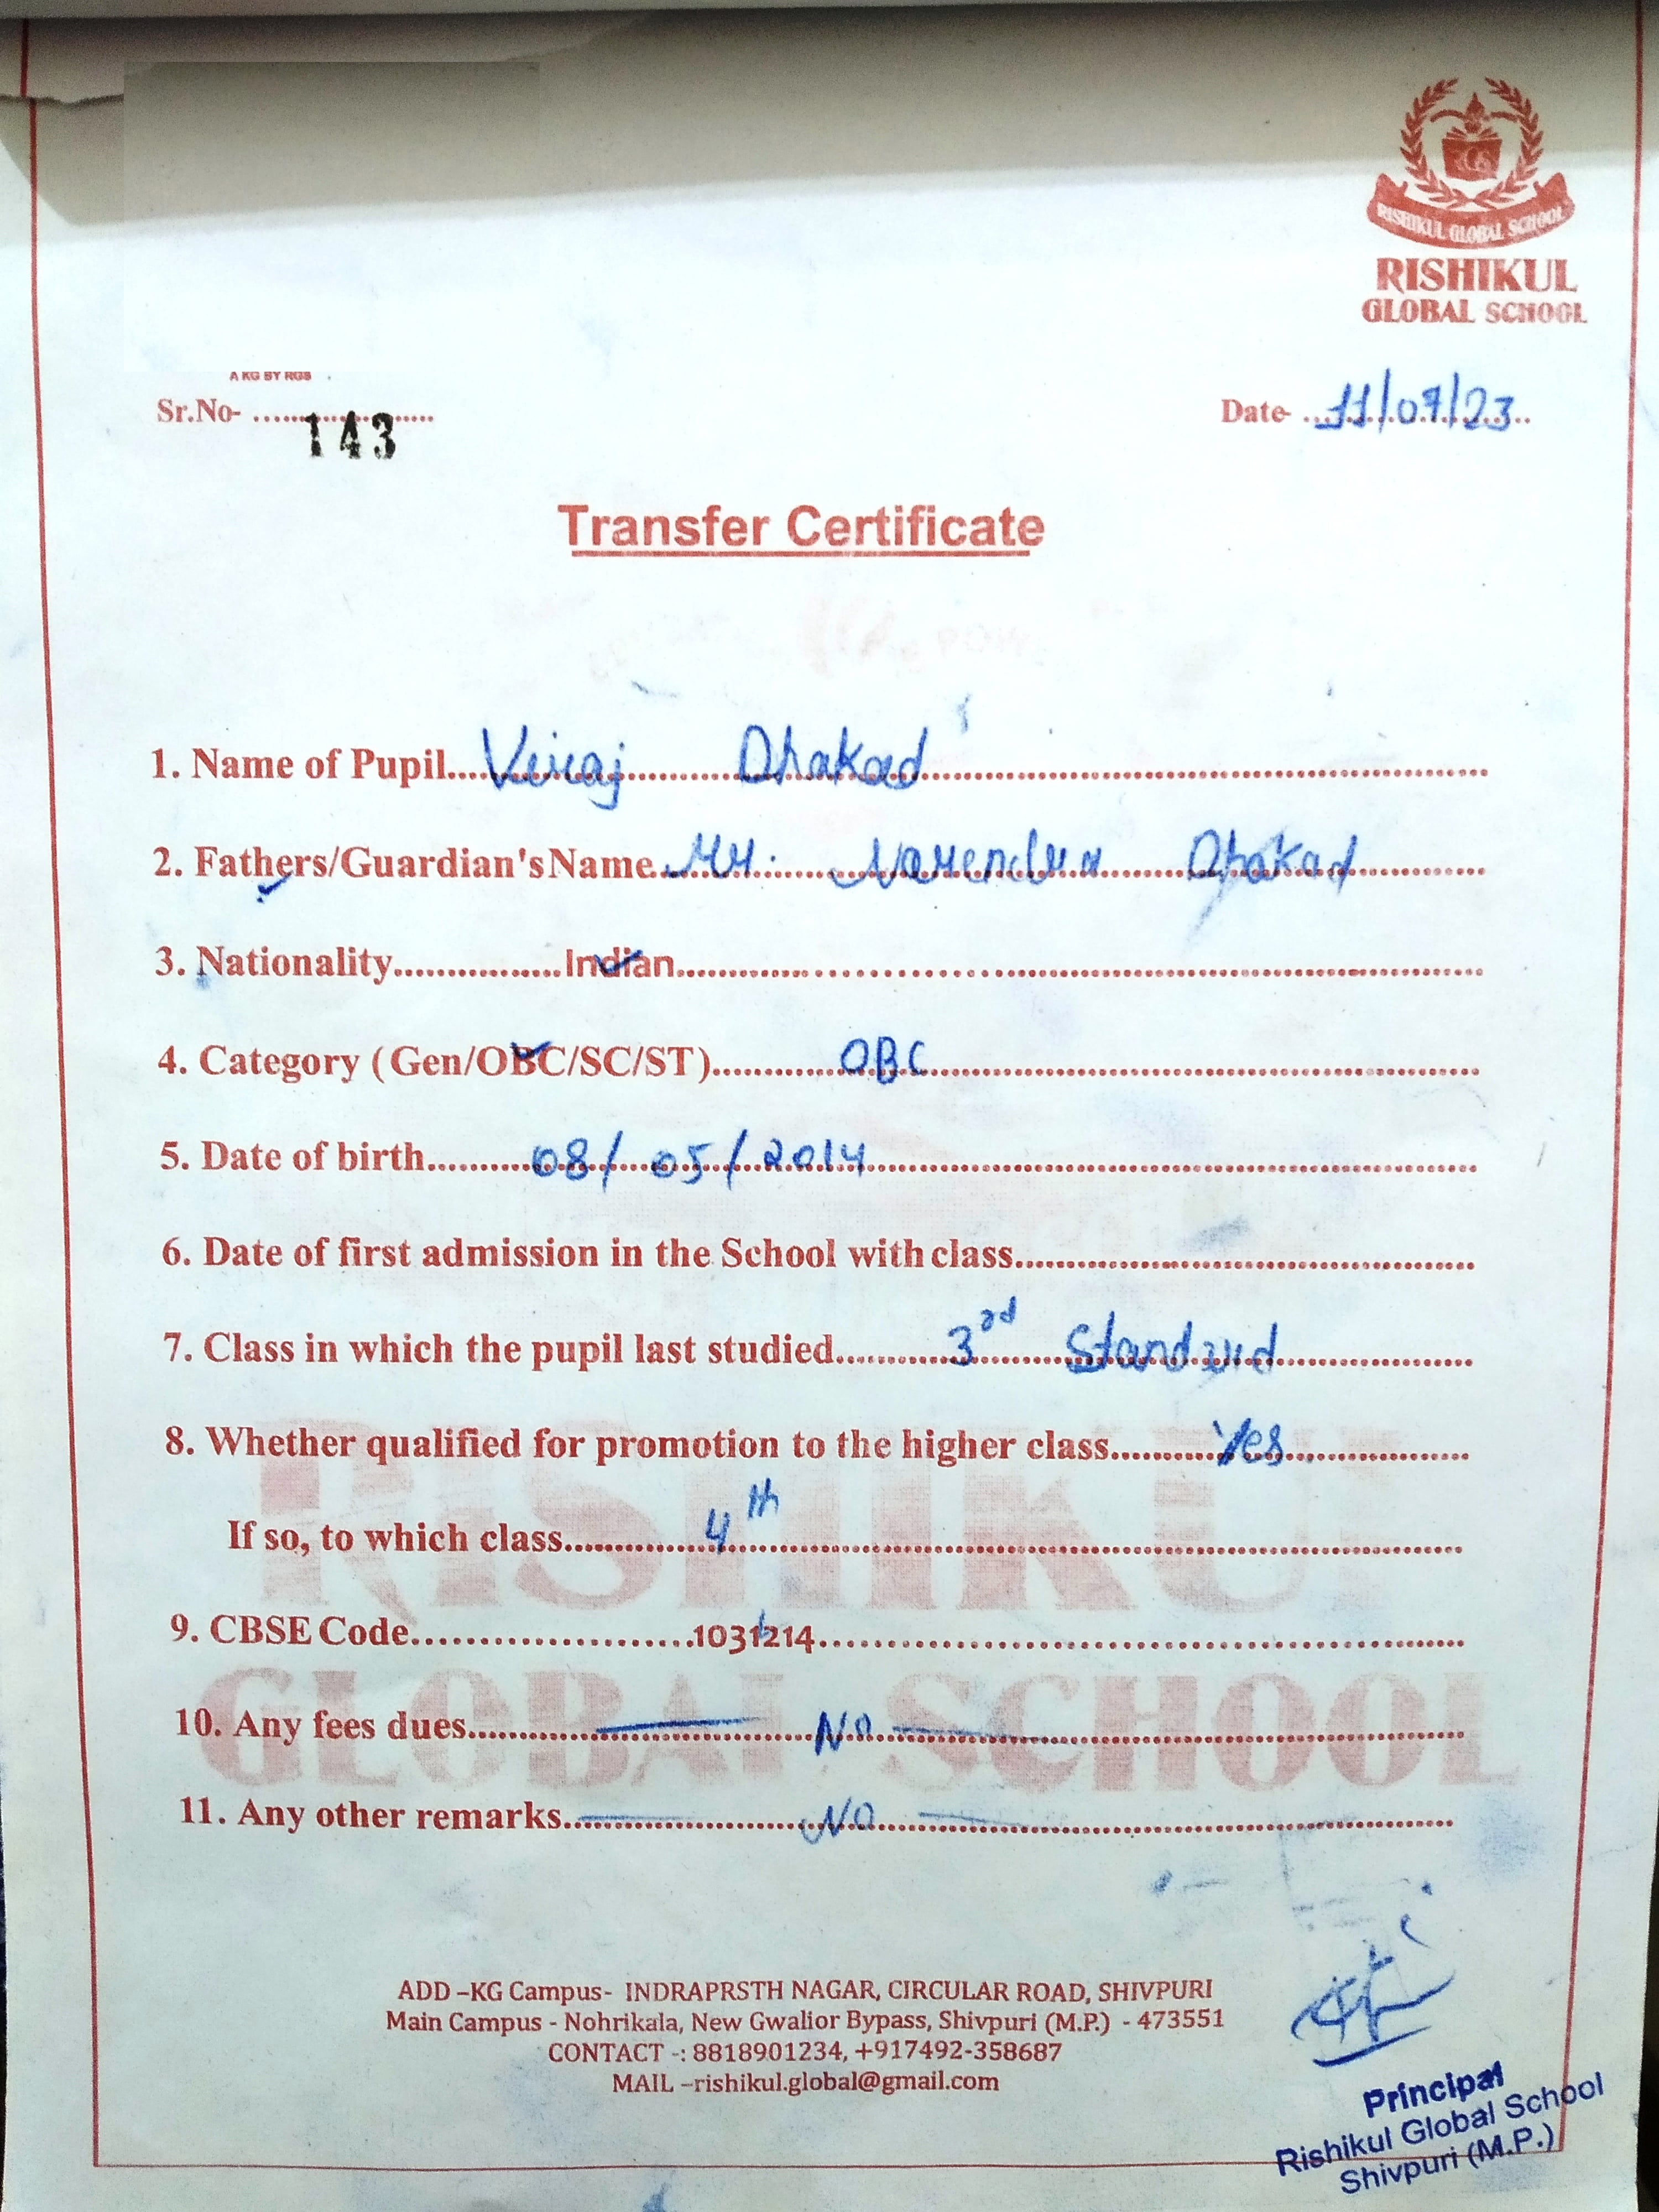 RISHIKUL GLOBAL SCHOOL
RISHIKUL
GLOBAL SCHOOL
A KG BY RGS
Sr.No- ......143......
Date- ...11/07/23..
Transfer Certificate
1. Name of Pupil....Viraj........Dhakad........
2. Fathers/Guardian's Name...Mr. ........Narendra........Dhakad........
3. Nationality...............Indian...............
4. Category (Gen/OBC/SC/ST)...........OBC...........
5. Date of birth...........08/05/2014...........
6. Date of first admission in the School with class...........
7. Class in which the pupil last studied...........3rd Standard...........
8. Whether qualified for promotion to the higher class..........Yes..........
If so, to which class...........4th...........
9. CBSE Code.......................1031214.......................
10. Any fees dues...........No...........
11. Any other remarks...........NO...........
RISHIKUL
GLOBAL SCHOOL
ADD –KG Campus- INDRAPRSTH NAGAR, CIRCULAR ROAD, SHIVPURI
Main Campus - Nohrikala, New Gwalior Bypass, Shivpuri (M.P.) - 473551
CONTACT -: 8818901234, +917492-358687
MAIL –rishikul.global@gmail.com
Principal
Rishikul Global School
Shivpuri (M.P.)